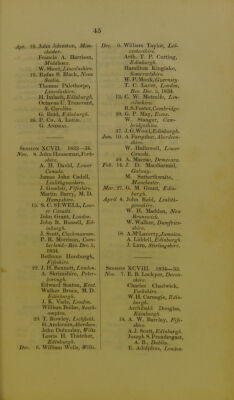 45
Apr. 10. John Johnston, Manchester.
Francis A. Harrison, Middlesex.
W. Short, Lincolnshire.
15. Rufus S. Black, Nova Scotia.
Thomas Palethorpe, Lincolnshire.
H. Imlach, Edinburgh.
Octavus I. Trancrant, S. Carolina.
G. Reid, Edinburgh.
26. P. Co. A. Latin.
G. ANDRAL.
SESSION XCVII. 1833—34.
Nov. 8. John Houseman, Yorkshire.
A. H. David, Lower Canada.
James John Cadell, Linlithgowshire.
J. Goodsir, Fifeshire.
Martin Barry, M. D. Hampshire.
15. S. C. SEWELL, Lower Canada.
John Grant, London.
John R. Russell, Edinburgh.
J. Scott, Clackmannan.
P. R. Morrison, Cumberland—Res Dec. 5, 1834.
Bethune Horsburgh, Fifeshire.
22. J. H. Bennett, London.
A. Skrimshire, Peterborough.
Edward Seaton, Kent.
Walker Bruce, M.D. Edinburgh.
J. K. Viels, London.
William Bullar, Southampton.
29. T. Rowley, Lichfield.
G. Anderson, Aberdeen.
John Dalrymple, Wilts
Lewis H. Thatcher, Edinburgh.
Dec. 6. William Wells, Wilts.
Dec. 6. William Taylor, Leicestershire.
Arth. T. P. Cutting, Edinburgh.
Hamilton Kinglake, Somersetshire.
M. P. Moyle, Guernsey.
T. C. Laver, London, Res. Dec. 5. 1834.
13. C. W. Metcalfe, Lincolnshire.
R. S. Foster, Cambridge.
20. G. P. May, Essex.
W. Stanger, Cambridgeshire.
27. J. G. Wood, Edinburgh.
Jan. 10. A. Farquhar, Aberdeenshire.
W. Hallowell, Lower Canada.
24. A. Macrae, Demerara.
Feb. 14. J. D. Macdiarmid, Galway.
M. Satterthwaite, Manchester.
Mar. 27. G. M. Grant, Edinburgh.
April 4. John Reid, Linlithgowshire.
W. H. Madden, New Brunswick.
W. Wallace, Dumfriesshire.
18. A. McLaverty, Jamaica.
A. Liddell, Edinburgh
J. Lunn, Stirlingshire.
SESSION XCVIII. 1834—35.
Nov. 7. E. B. Lockyer, Devonshire.
Charles Chadwick, Yorkshire.
W. H. Carnegie, Edinburgh.
Archibald Douglas, Edinburgh.
14. A. W. Barclay, Fifeshire.
A. J. Scott, Edinburgh.
Joseph S. Prendergast, A. B., Dublin.
E. Adolphus, London